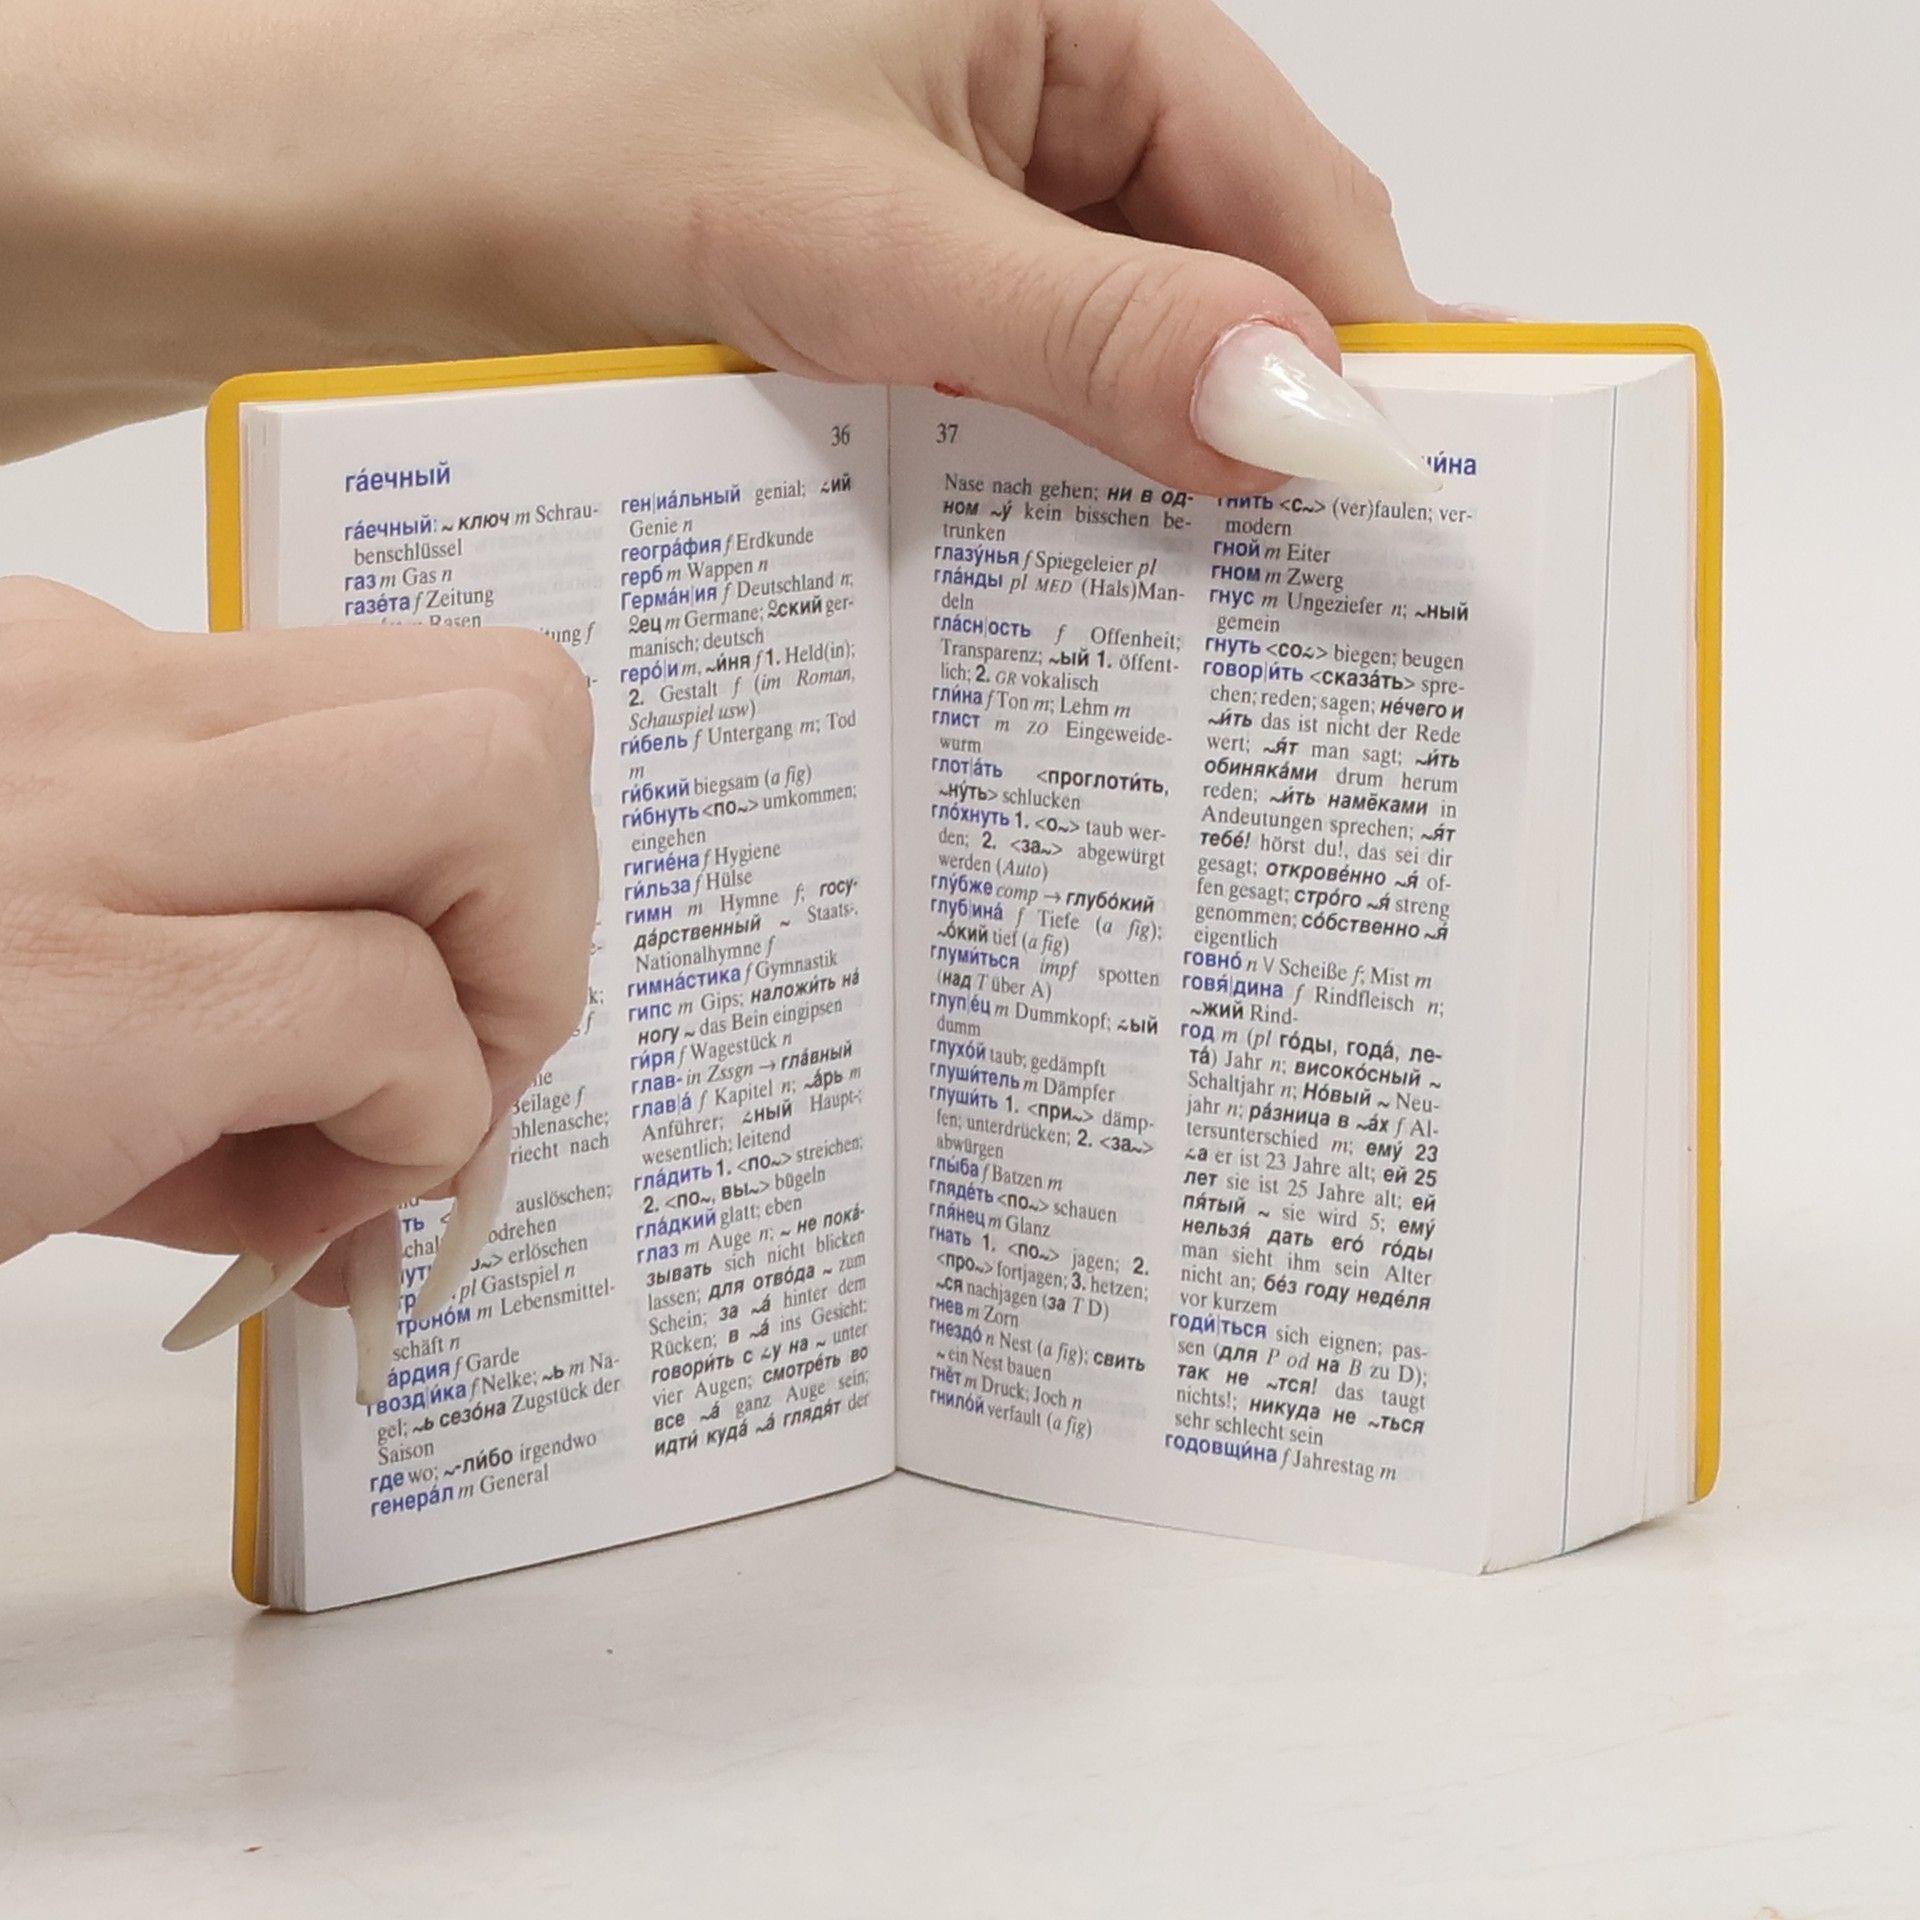 36
га́ечный
га́ечный: ~ ключ m Schrau-
benschlüssel
газ m Gas n
газе́та f Zeitung
Rasen
auslöschen;
erlöschen
pl Gastspiel n
m Lebensmittel-
schäft n
f Garde
гвозд|и́ка f Nelke; ~ь m Na-
gel; ~ь сезо́на Zugstück der
Saison
где wo; ~-ли́бо irgendwo
генера́л m General
ген|иа́льный genial; ~́ий
Genie n
геогра́фия f Erdkunde
герб m Wappen n
Герма́н|ия f Deutschland n;
~́ец m Germane; ~́ский ger-
manisch; deutsch
геро́|и m, ~и́ня f 1. Held(in);
2. Gestalt f (im Roman,
Schauspiel usw)
ги́бель f Untergang m; Tod
m
ги́бкий biegsam (a fig)
ги́бнуть <по~> umkommen;
eingehen
гигие́на f Hygiene
ги́льза f Hülse
гимн m Hymne f; госу-
да́рственный ~ Staats-,
Nationalhymne f
гимна́стика f Gymnastik
гипс m Gips; наложи́ть на́
ногу ~ das Bein eingipsen
ги́ря f Wagestück n
глав- in Zssgn → гла́вный
глав|а́ f Kapitel n; ~а́рь m
Anführer; ~́ный Haupt-;
wesentlich; leitend
гла́дить 1. <по~> streichen;
2. <по~, вы~> bügeln
гла́дкий glatt; eben
глаз m Auge n; ~ не пока́-
зывать sich nicht blicken
lassen; для отво́да ~ zum
Schein; за ~а́ hinter dem
Rücken; в ~а́ ins Gesicht;
говори́ть с ~́у на ~ unter
vier Augen; смотре́ть во
все ~а́ ganz Auge sein;
идти́ куда́ ~а́ глядя́т der
37
Nase nach gehen; ни в од-
ном ~у́ kein bisschen be-
trunken
глазу́нья f Spiegeleier pl
гла́нды pl MED (Hals)Man-
deln
гла́сн|ость f Offenheit;
Transparenz; ~ый 1. öffent-
lich; 2. GR vokalisch
гли́на f Ton m; Lehm m
глист m ZO Eingeweide-
wurm
глот|а́ть <проглоти́ть,
~ну́ть> schlucken
гло́хнуть 1. <о~> taub wer-
den; 2. <за~> abgewürgt
werden (Auto)
глу́бже comp → глубо́кий
глуб|ина́ f Tiefe (a fig);
~о́кий tief (a fig)
глуми́ться impf spotten
(над T über A)
глуп|е́ц m Dummkopf; ~́ый
dumm
глухо́й taub; gedämpft
глуши́тель m Dämpfer
глуши́ть 1. <при~> dämp-
fen; unterdrücken; 2. <за~>
abwürgen
глы́ба f Batzen m
гляде́ть <по~> schauen
гля́нец m Glanz
гнать 1. <по~> jagen; 2.
<про~> fortjagen; 3. hetzen;
~ся nachjagen (за T D)
гнев m Zorn
гнездо́ n Nest (a fig); свить
~ ein Nest bauen
гнёт m Druck; Joch n
гнило́й verfault (a fig)
гнить <с~> (ver)faulen; ver-
modern
гной m Eiter
гном m Zwerg
гнус m Ungeziefer n; ~ный
gemein
гнуть <со~́> biegen; beugen
говор|и́ть <сказа́ть> spre-
chen; reden; sagen; не́чего и
~и́ть das ist nicht der Rede
wert; ~я́т man sagt; ~и́ть
обиняка́ми drum herum
reden; ~и́ть намёками in
Andeutungen sprechen; ~я́т
тебе́! hörst du!, das sei dir
gesagt; открове́нно ~я́ of-
fen gesagt; стро́го ~я́ streng
genommen; со́бственно ~я́
eigentlich
говно́ n V Scheiße f; Mist m
говя́|дина f Rindfleisch n;
~жий Rind-
год m (pl го́ды, года́, ле-
та́) Jahr n; високо́сный ~
Schaltjahr n; Но́вый ~ Neu-
jahr n; ра́зница в ~а́х f Al-
tersunterschied m; ему́ 23
~́а er ist 23 Jahre alt; ей 25
лет sie ist 25 Jahre alt; ей
пя́тый ~ sie wird 5; ему́
нельзя́ дать его́ го́ды
man sieht ihm sein Alter
nicht an; бе́з году неде́ля
vor kurzem
годи́|ться sich eignen; pas-
sen (для P od на B zu D);
так не ~тся! das taugt
nichts!; никуда не ~ться
sehr schlecht sein
годовщи́на f Jahrestag m